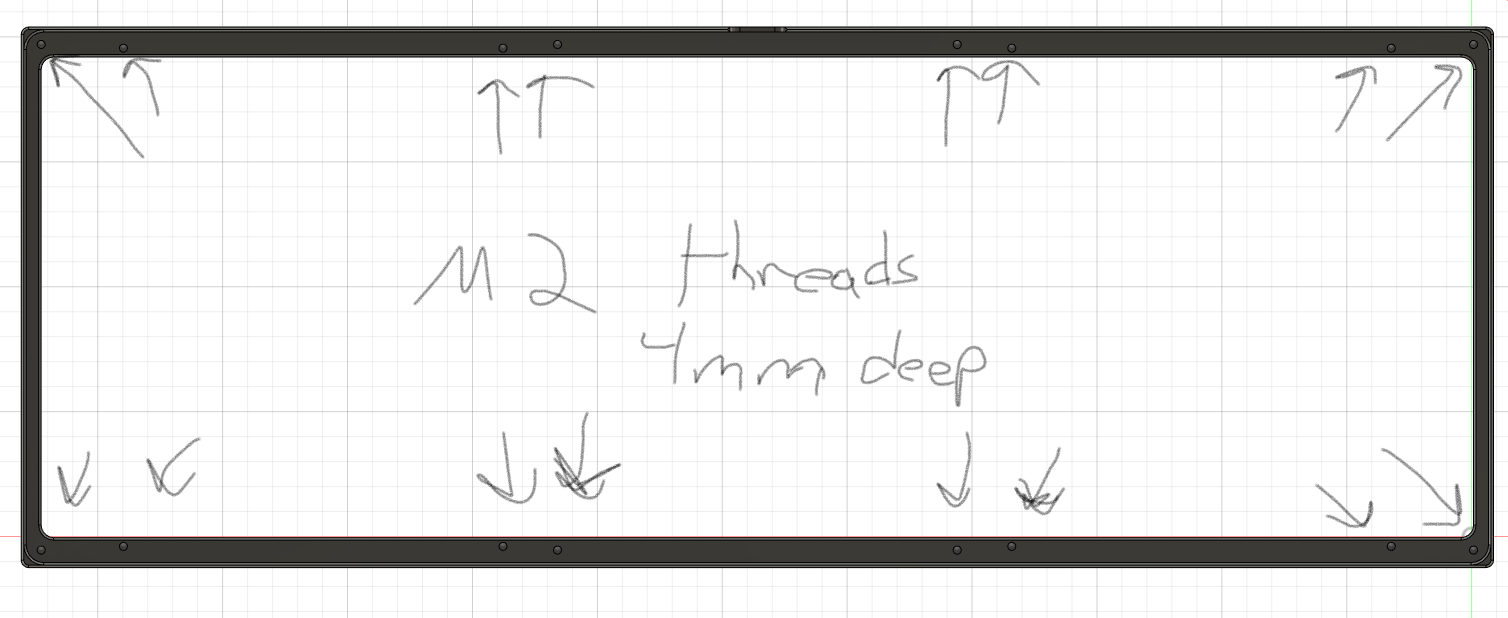 M2 threads
4mm deep